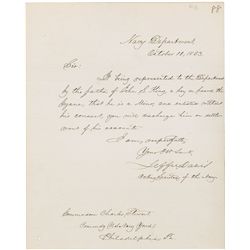 88
Navy Department
October 10, 1853
Sir:
It being represented to the Department
by the father of John S. King, a boy on board the
Cyane, that he is a Minor, and enlisted without
his consent, you will discharge him on settle-
ment of his accounts.
I am, respectfully,
Your Obt. Servt.
Jeffn. Davis
Acting Secretary of the Navy
Commodore Charles Stewart
Comdg. Navy Yard
Philadelphia, Pa.